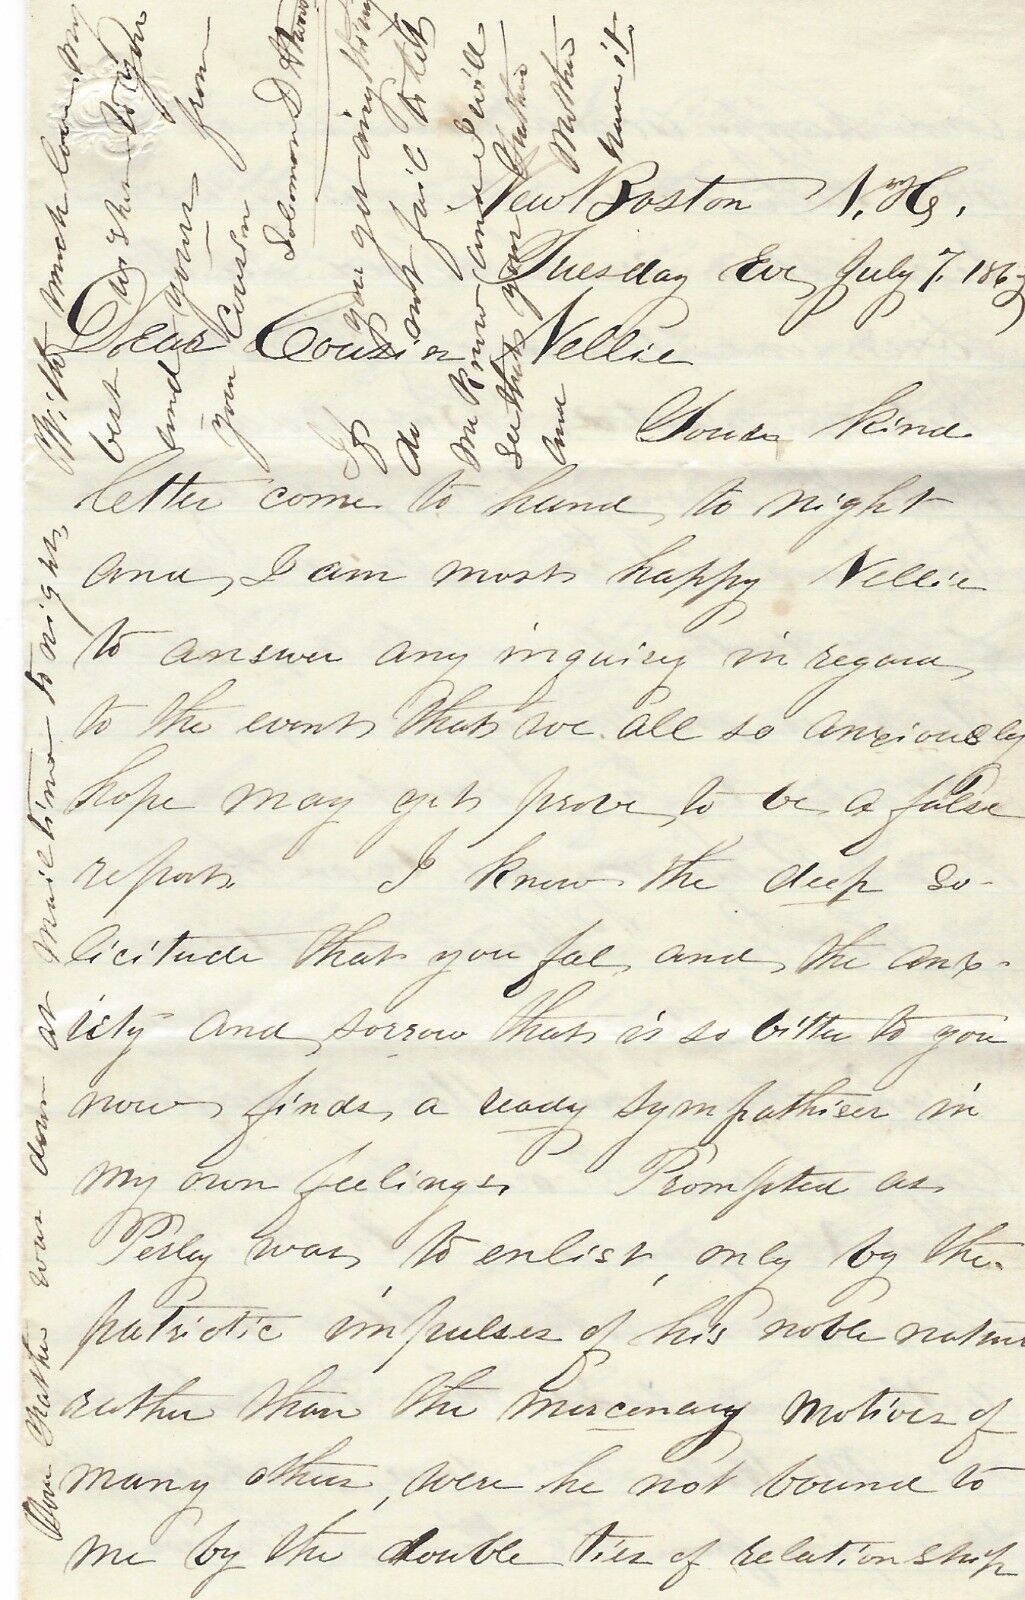 New Boston N. H.,
Tuesday Eve July 7. 1863
Dear Cousin Nellie
Your kind
letter come to hand to night
and I am most happy Nellie
to answer any inquiry in regard
to the event that we all so anxiously
hope may yet prove to be a false
report. I know the deep so-
licitude that you feel and the anx-
iety and sorrow that is so bitter to you
now finds a ready sympathiser in
my own feelings. Prompted as
Perley was to enlist, only by the
patriotic impulses of his noble nature
rather than the mercenary motives of
many others, were he not bound to
me by the double ties of relationship
Your Father was down at Mail time to night,
With much love, my
best wishes to you
and yours from
your Cousin
Solomon D
If you get any thing
do not fail to let
me know and I will
see that your Father
and Mother
have it.